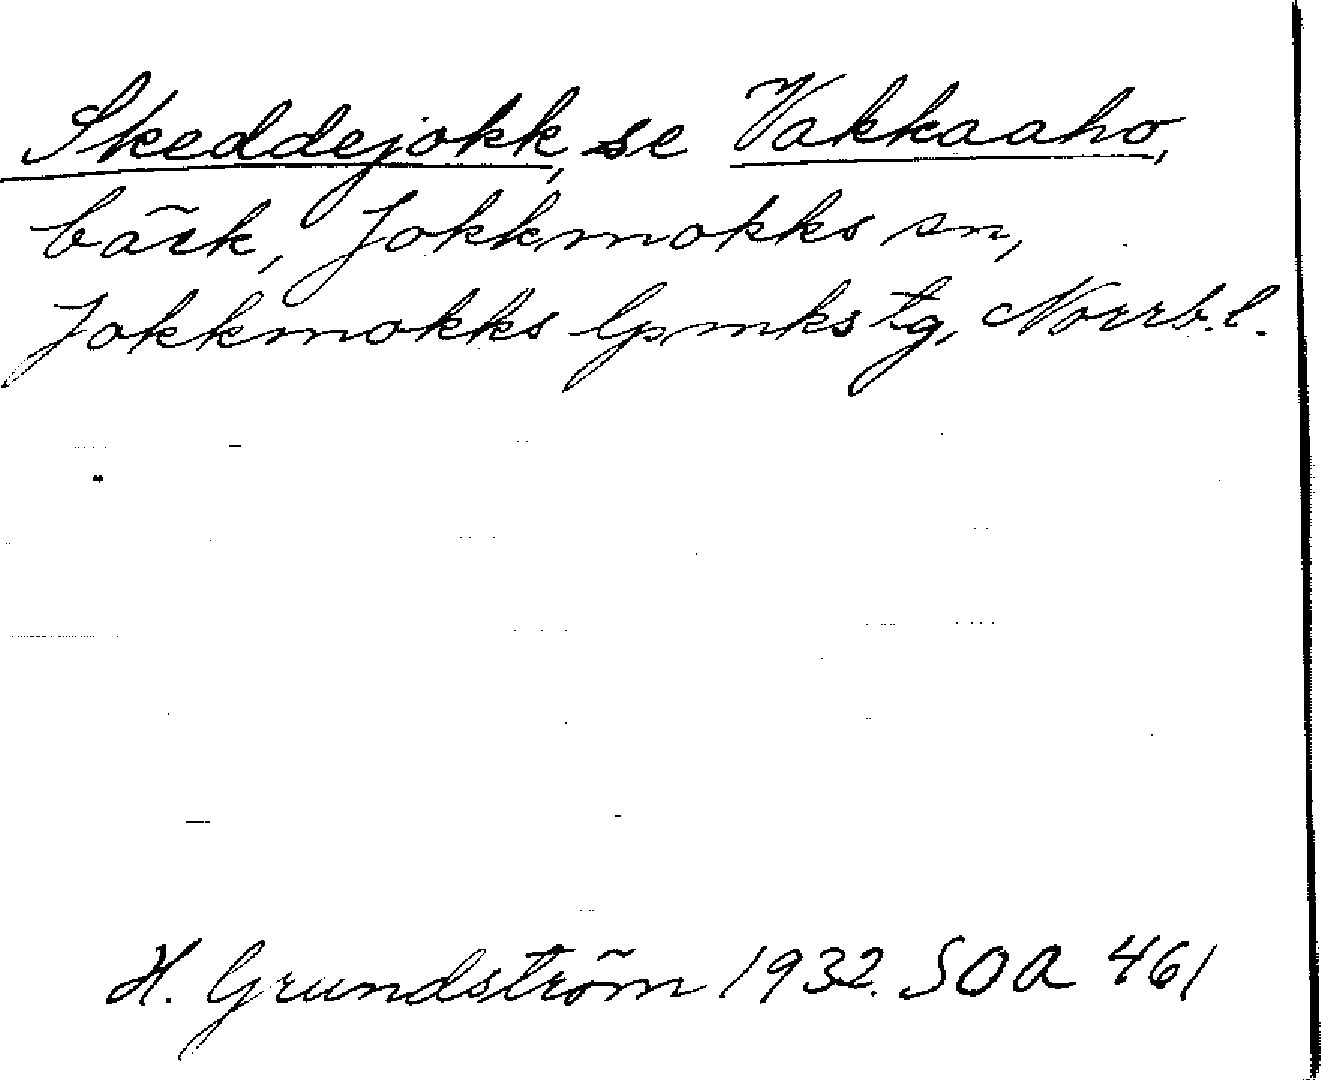 Skeddejokk, se Vakkaaho,
bäck, Jokkmokks sn,
Jokkmokks lpmks tg, Norrb. l.
H. Grundström 1932. SOA 461